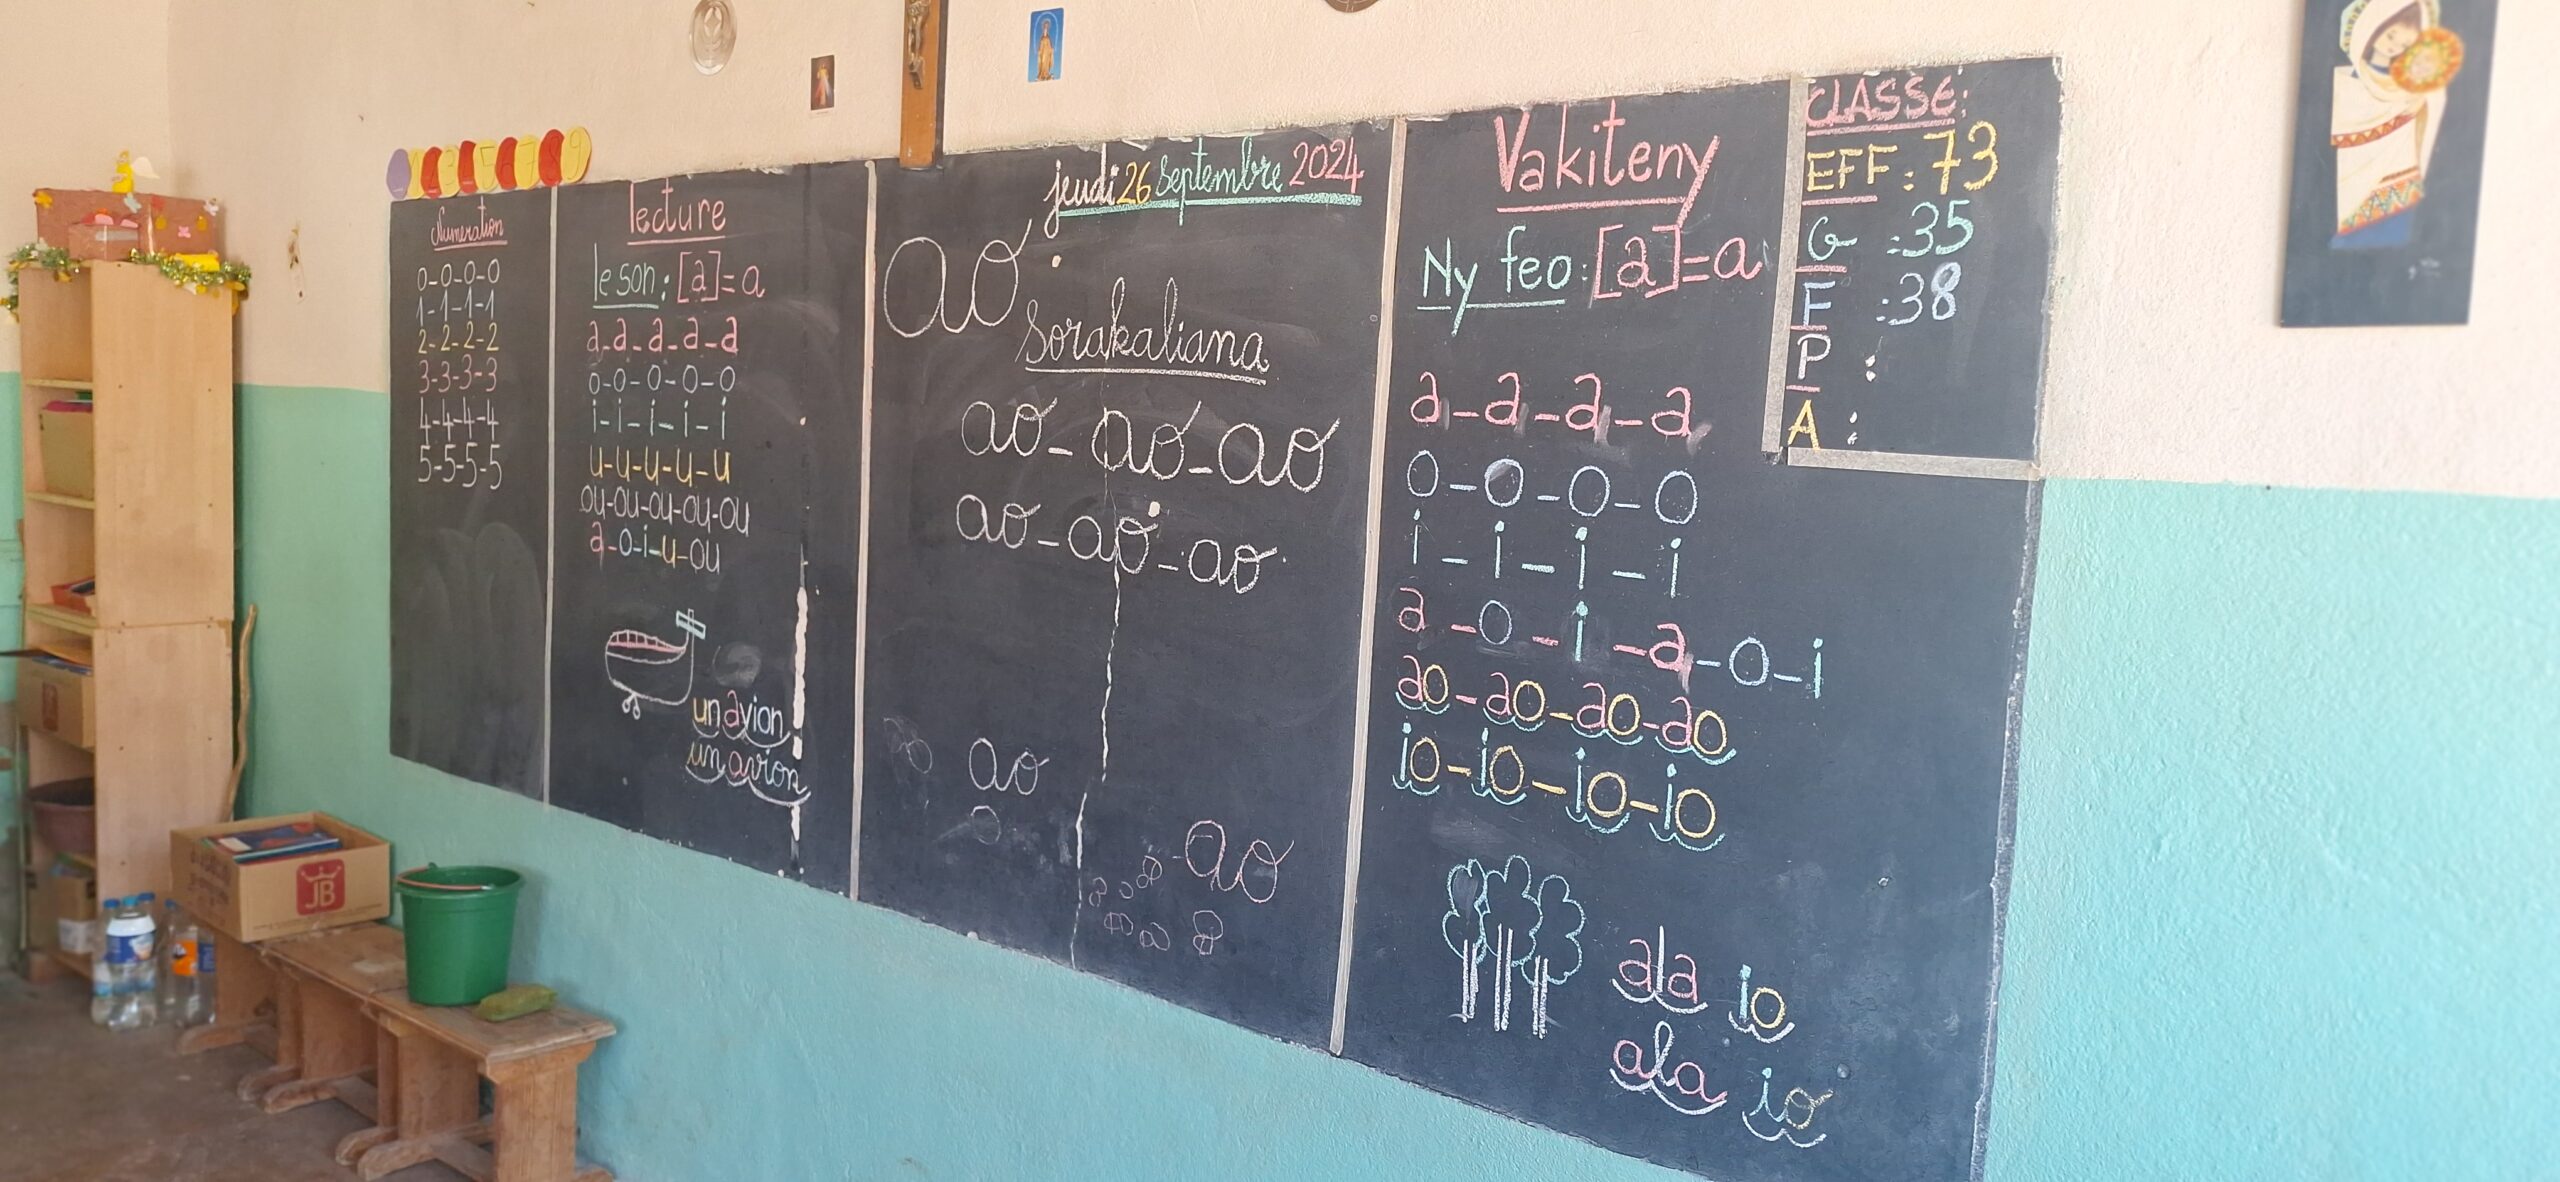 Numération
0-0-0-0
1-1-1-1
2-2-2-2
3-3-3-3
4-4-4-4
5-5-5-5
lecture
le son: [a]=a
a-a-a-a-a
o-o-o-o-o
i-i-i-i-i
u-u-u-u-u
ou-ou-ou-ou-ou
a-o-i-u-ou
un avion
un avion
jeudi 26 Septembre 2024
ao
Sorakaliana
ao-ao-ao
ao-ao-ao
ao
ao
Vakiteny
Ny feo: [a]=a
a-a-a-a
o-o-o-o
i-i-i-i
a-o-i-a-o-i
ao-ao-ao-ao
io-io-io-io
ala io
ala io
CLASSE:
EFF: 73
G :35
F :38
P :
A :
JB